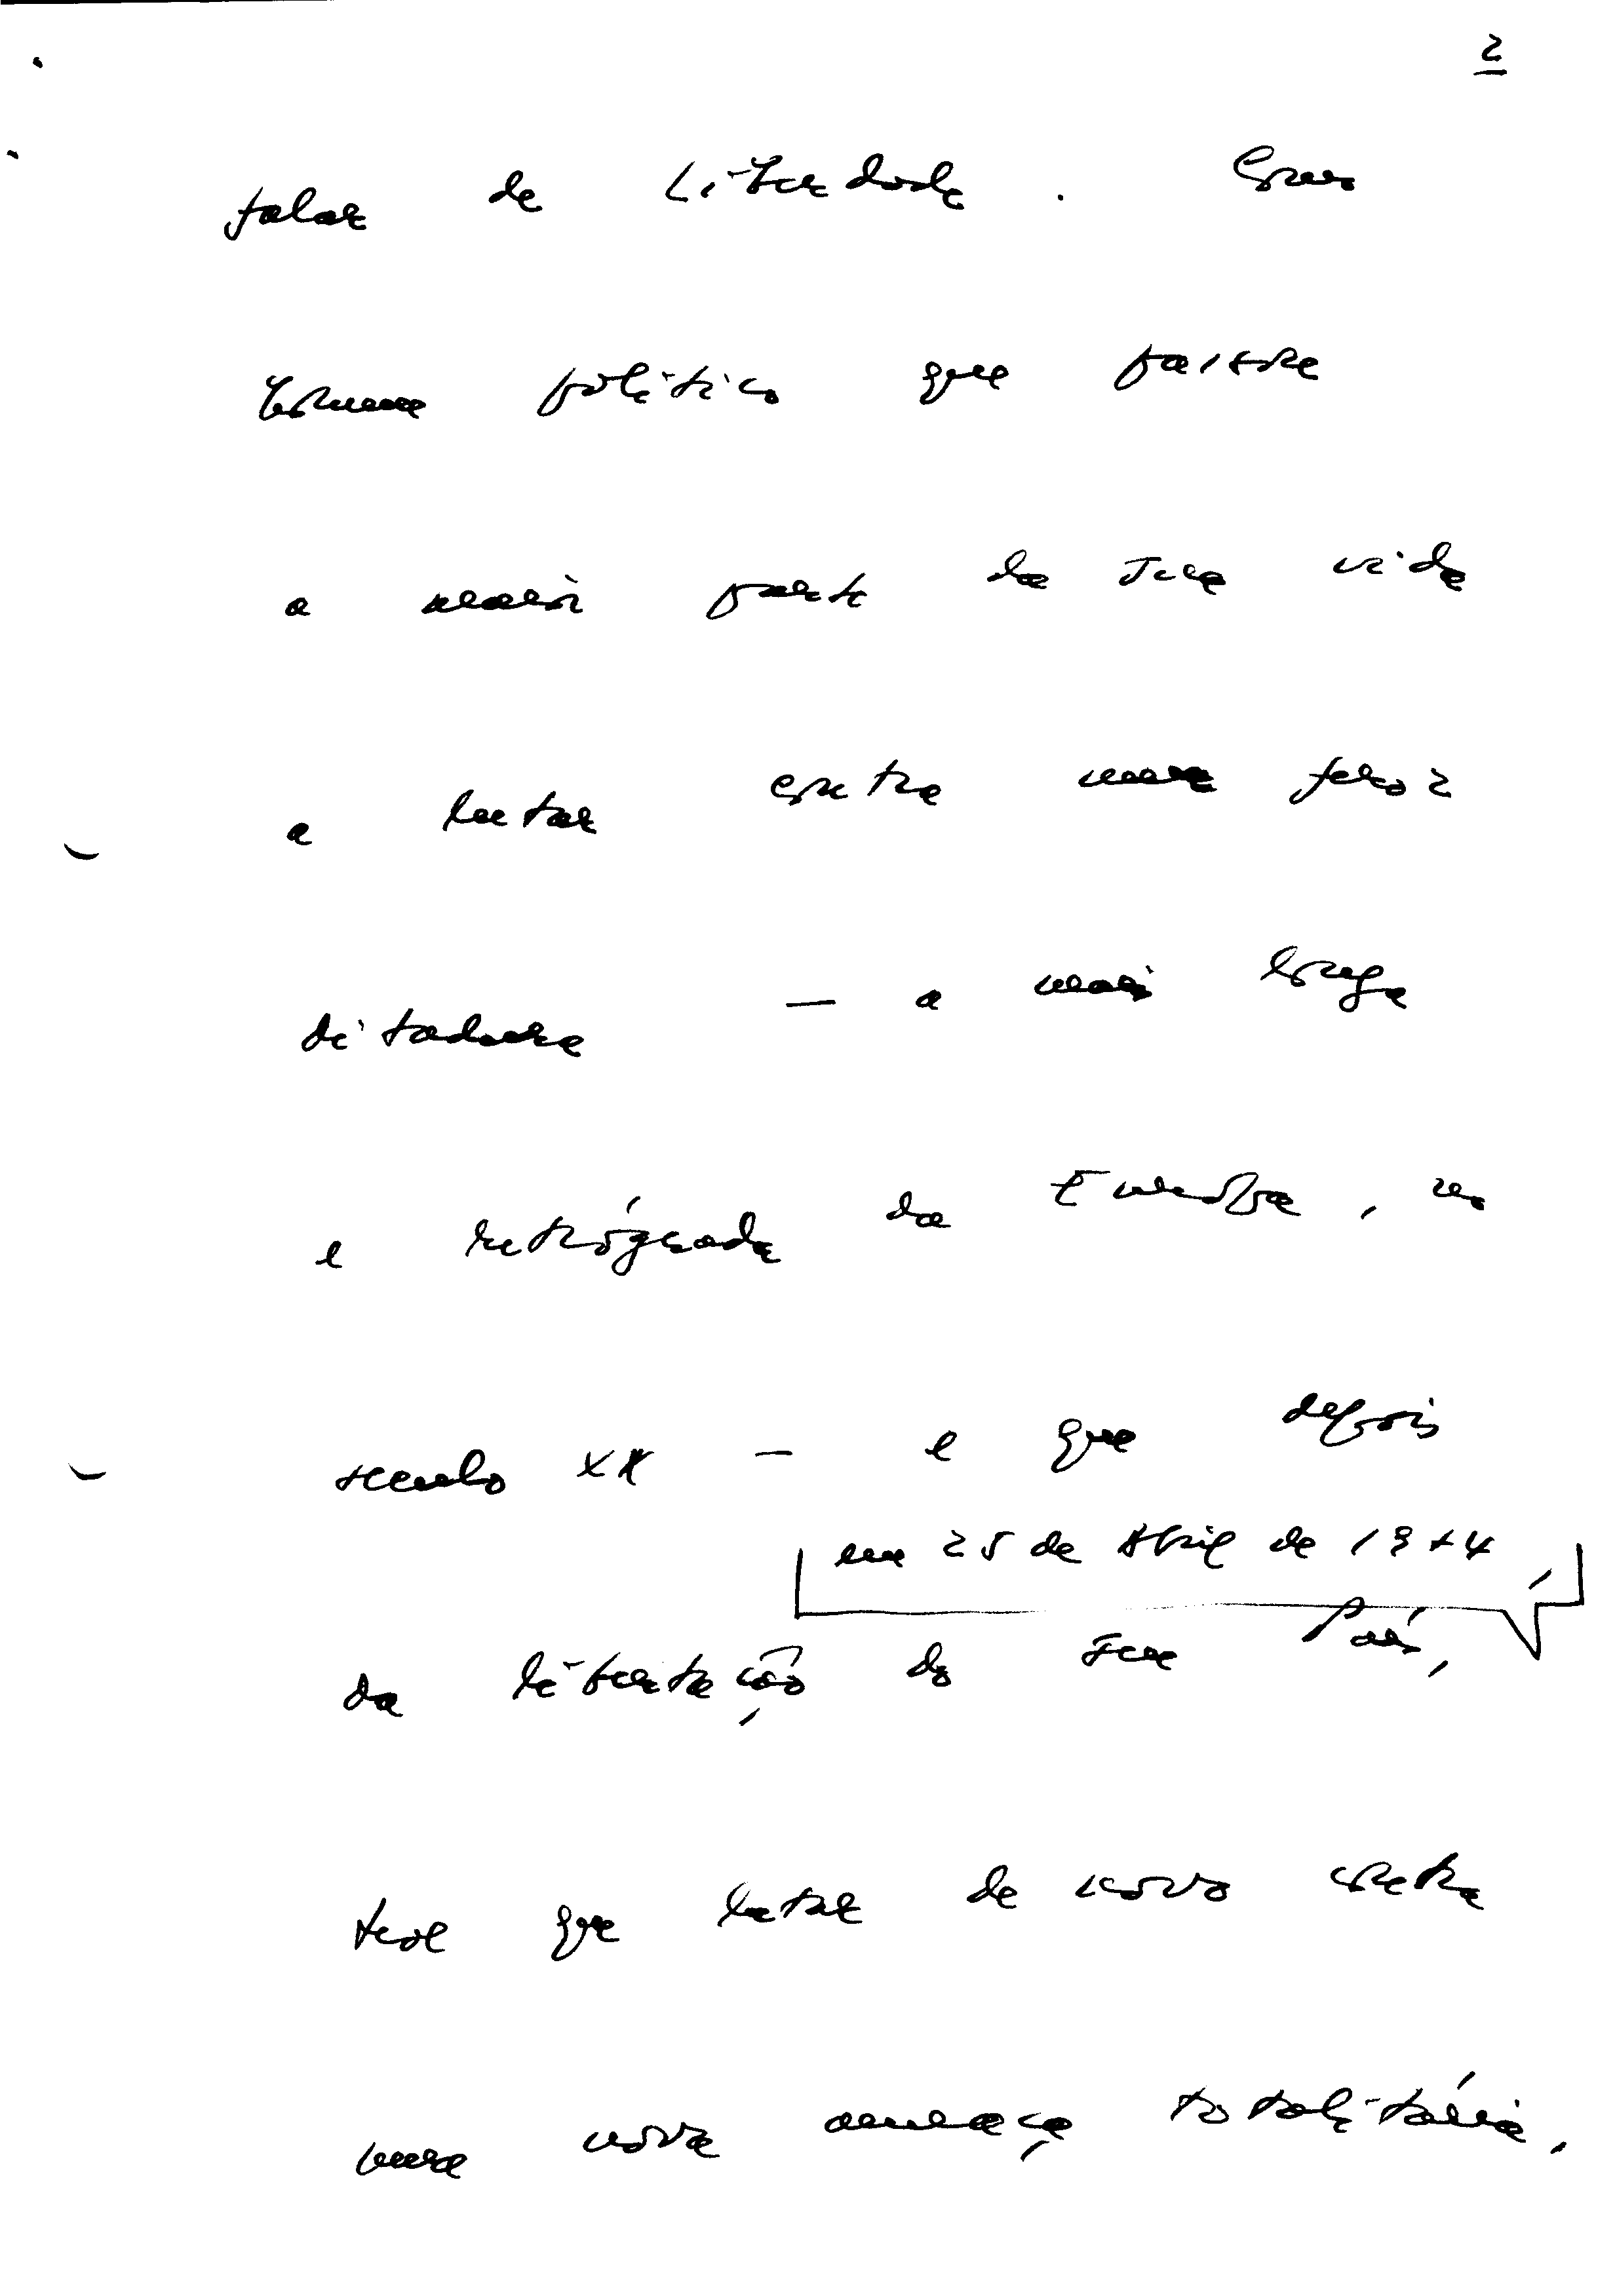 2
falar de Liberdade. Como
homem político que passou
a maior parte da sua vida
a lutar contra uma feroz
ditadura — a mais longa
e retrógrada da Europa, no
século XX — e que depois
em 25 de Abril de 1974
da libertação do seu País,
teve que lutar de novo contra
uma nova ameaça totalitária,